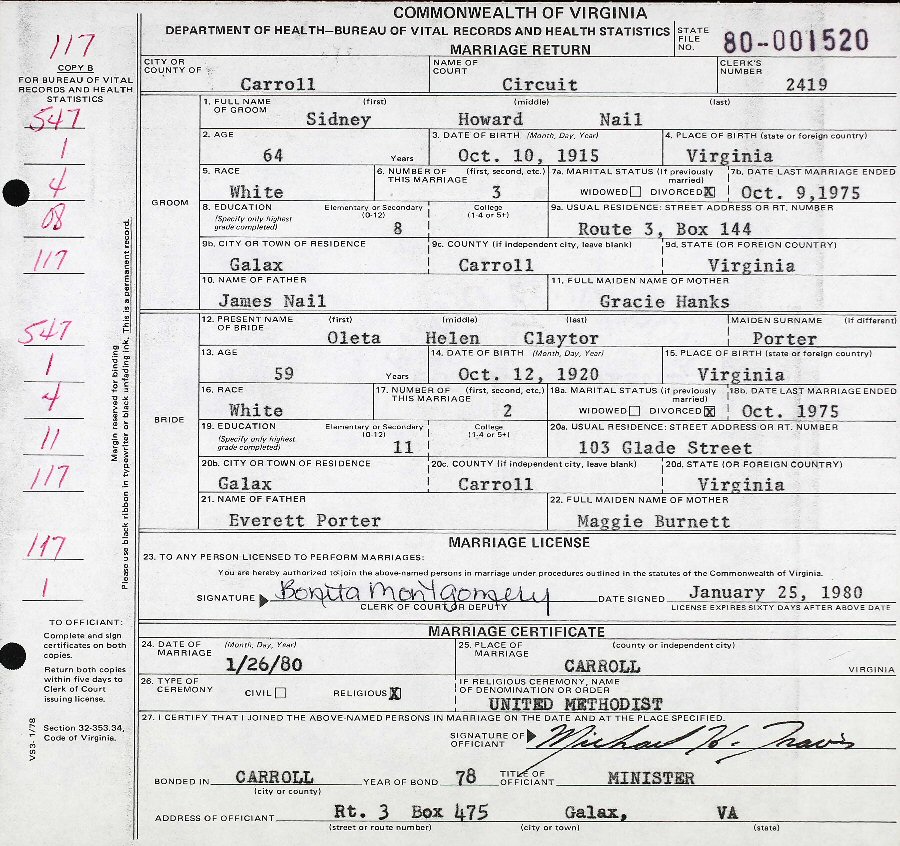 COMMONWEALTH OF VIRGINIA
DEPARTMENT OF HEALTH—BUREAU OF VITAL RECORDS AND HEALTH STATISTICS
MARRIAGE RETURN
STATE FILE NO. 80-001520
117
COPY B
FOR BUREAU OF VITAL
RECORDS AND HEALTH
STATISTICS
547
1
4
08
117
547
1
4
11
117
117
1
Margin reserved for binding
Please use black ribbon in typewriter or black unfading ink. This is a permanent record.
TO OFFICIANT:
Complete and sign
certificates on both
copies.
Return both copies
within five days to
Clerk of Court
issuing license.
Section 32-353.34,
Code of Virginia.
VS3- 1/78
CITY OR COUNTY OF Carroll
NAME OF COURT Circuit
CLERK'S NUMBER 2419
GROOM
1. FULL NAME OF GROOM (first) (middle) (last)
Sidney Howard Nail
2. AGE 64 Years
3. DATE OF BIRTH (Month, Day, Year) Oct. 10, 1915
4. PLACE OF BIRTH (state or foreign country) Virginia
5. RACE White
6. NUMBER OF THIS MARRIAGE (first, second, etc.) 3
7a. MARITAL STATUS (if previously married) WIDOWED DIVORCED X
7b. DATE LAST MARRIAGE ENDED Oct. 9,1975
8. EDUCATION (Specify only highest grade completed) Elementary or Secondary (0-12) 8 College (1-4 or 5+)
9a. USUAL RESIDENCE: STREET ADDRESS OR RT. NUMBER Route 3, Box 144
9b. CITY OR TOWN OF RESIDENCE Galax
9c. COUNTY (if independent city, leave blank) Carroll
9d. STATE (OR FOREIGN COUNTRY) Virginia
10. NAME OF FATHER James Nail
11. FULL MAIDEN NAME OF MOTHER Gracie Hanks
BRIDE
12. PRESENT NAME OF BRIDE (first) (middle) (last) MAIDEN SURNAME (if different)
Oleta Helen Claytor Porter
13. AGE 59 Years
14. DATE OF BIRTH (Month, Day, Year) Oct. 12, 1920
15. PLACE OF BIRTH (state or foreign country) Virginia
16. RACE White
17. NUMBER OF THIS MARRIAGE (first, second, etc.) 2
18a. MARITAL STATUS (if previously married) WIDOWED DIVORCED X
18b. DATE LAST MARRIAGE ENDED Oct. 1975
19. EDUCATION (Specify only highest grade completed) Elementary or Secondary (0-12) 11 College (1-4 or 5+)
20a. USUAL RESIDENCE: STREET ADDRESS OR RT. NUMBER 103 Glade Street
20b. CITY OR TOWN OF RESIDENCE Galax
20c. COUNTY (if independent city, leave blank) Carroll
20d. STATE (OR FOREIGN COUNTRY) Virginia
21. NAME OF FATHER Everett Porter
22. FULL MAIDEN NAME OF MOTHER Maggie Burnett
MARRIAGE LICENSE
23. TO ANY PERSON LICENSED TO PERFORM MARRIAGES:
You are hereby authorized to join the above-named persons in marriage under procedures outlined in the statutes of the Commonwealth of Virginia.
SIGNATURE Bonita Montgomery DATE SIGNED January 25, 1980
CLERK OF COURT OR DEPUTY LICENSE EXPIRES SIXTY DAYS AFTER ABOVE DATE
MARRIAGE CERTIFICATE
24. DATE OF MARRIAGE (Month, Day, Year) 1/26/80
25. PLACE OF MARRIAGE (county or independent city) CARROLL VIRGINIA
26. TYPE OF CEREMONY CIVIL RELIGIOUS X
IF RELIGIOUS CEREMONY, NAME OF DENOMINATION OR ORDER UNITED METHODIST
27. I CERTIFY THAT I JOINED THE ABOVE-NAMED PERSONS IN MARRIAGE ON THE DATE AND AT THE PLACE SPECIFIED.
SIGNATURE OF OFFICIANT Michael W. Travis
BONDED IN CARROLL (city or county) YEAR OF BOND 78 TITLE OF OFFICIANT MINISTER
ADDRESS OF OFFICIANT Rt. 3 Box 475 Galax, VA
(street or route number) (city or town) (state)